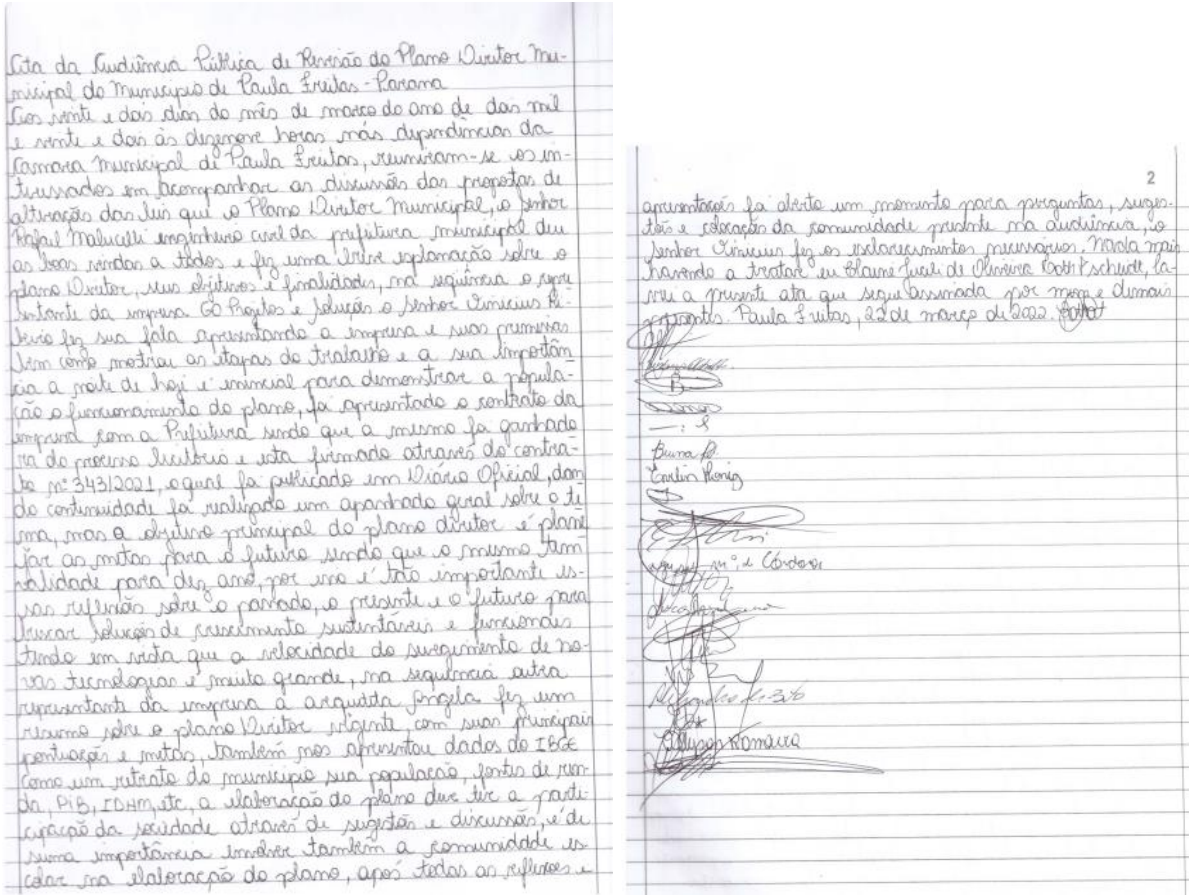 Ata da Audiência Pública de Revisão do Plano Diretor Mu-
nicipal do Municipio de Paula Freitas - Parana
Aos vinte e dois dias do mês de março do ano de dois mil
e vinte e dois às dezenove horas nas dependências da
Camara Municipal de Paula Freitas, reuniram-se os in-
teressados em acompanhar as discussões das propostas de
alteração das leis que o Plano Diretor Municipal, o senhor
Rafael Malucelli engenheiro civil da prefeitura municipal deu
as boas vindas a todos e fez uma breve explanação sobre o
plano Diretor, seus objetivos e finalidades, na sequência o repre
sentante da empresa Projetos e Solução o senhor Vinicius Ri-
beiro fez sua fala apresentando a empresa e suas premissas
bem como mostrou as etapas do trabalho e a sua importân
cia a noite de hoje é essencial para demonstrar a popula-
ção o funcionamento do plano, foi apresentado o contrato da
empresa com a Prefeitura sendo que a mesmo foi ganhado
ra do processo licitório e esta firmado através do contra-
to nº 343/2021, o qual foi publicado em Diário Oficial, dan
do continuidade foi realizado um apanhado geral sobre o te
ma, mas o objetivo principal do plano diretor é plane
jar as metas para o futuro sendo que o mesmo tem
validade para dez ano, por isso é tão importante es-
sas reflexões sobre o passado, o presente e o futuro para
buscar soluções de crescimento sustentáveis e funcionais
tendo em vista que a velocidade do surgimento de no-
vas tecnologias é muito grande, na sequência outra
representante da empresa a arquiteta Angela fez um
resumo sobre o plano Diretor vigente com suas principais
pontuações e metas, também nos apresentou dados do IBGE
como um retrato do municipio sua população, fontes de ren-
da, PIB, IDHM, etc, a elaboração do plano deve ter a parti-
cipação da sociedade através de sugestões e discussões, é de
suma importância envolver também a comunidade es
colar na elaboração do plano, após todas as reflexoes e
2
apresentações foi aberto um momento para perguntas, suges-
tões e colocação da comunidade presente na audiência, o
senhor Vinicius fez os esclarecimentos necessários. Nada mais
havendo a tratar eu de Oliveira la-
vrei a presente ata que segue assinada por mim e demais
presentes. Paula Freitas, 22 de março de 2022.
Bruna